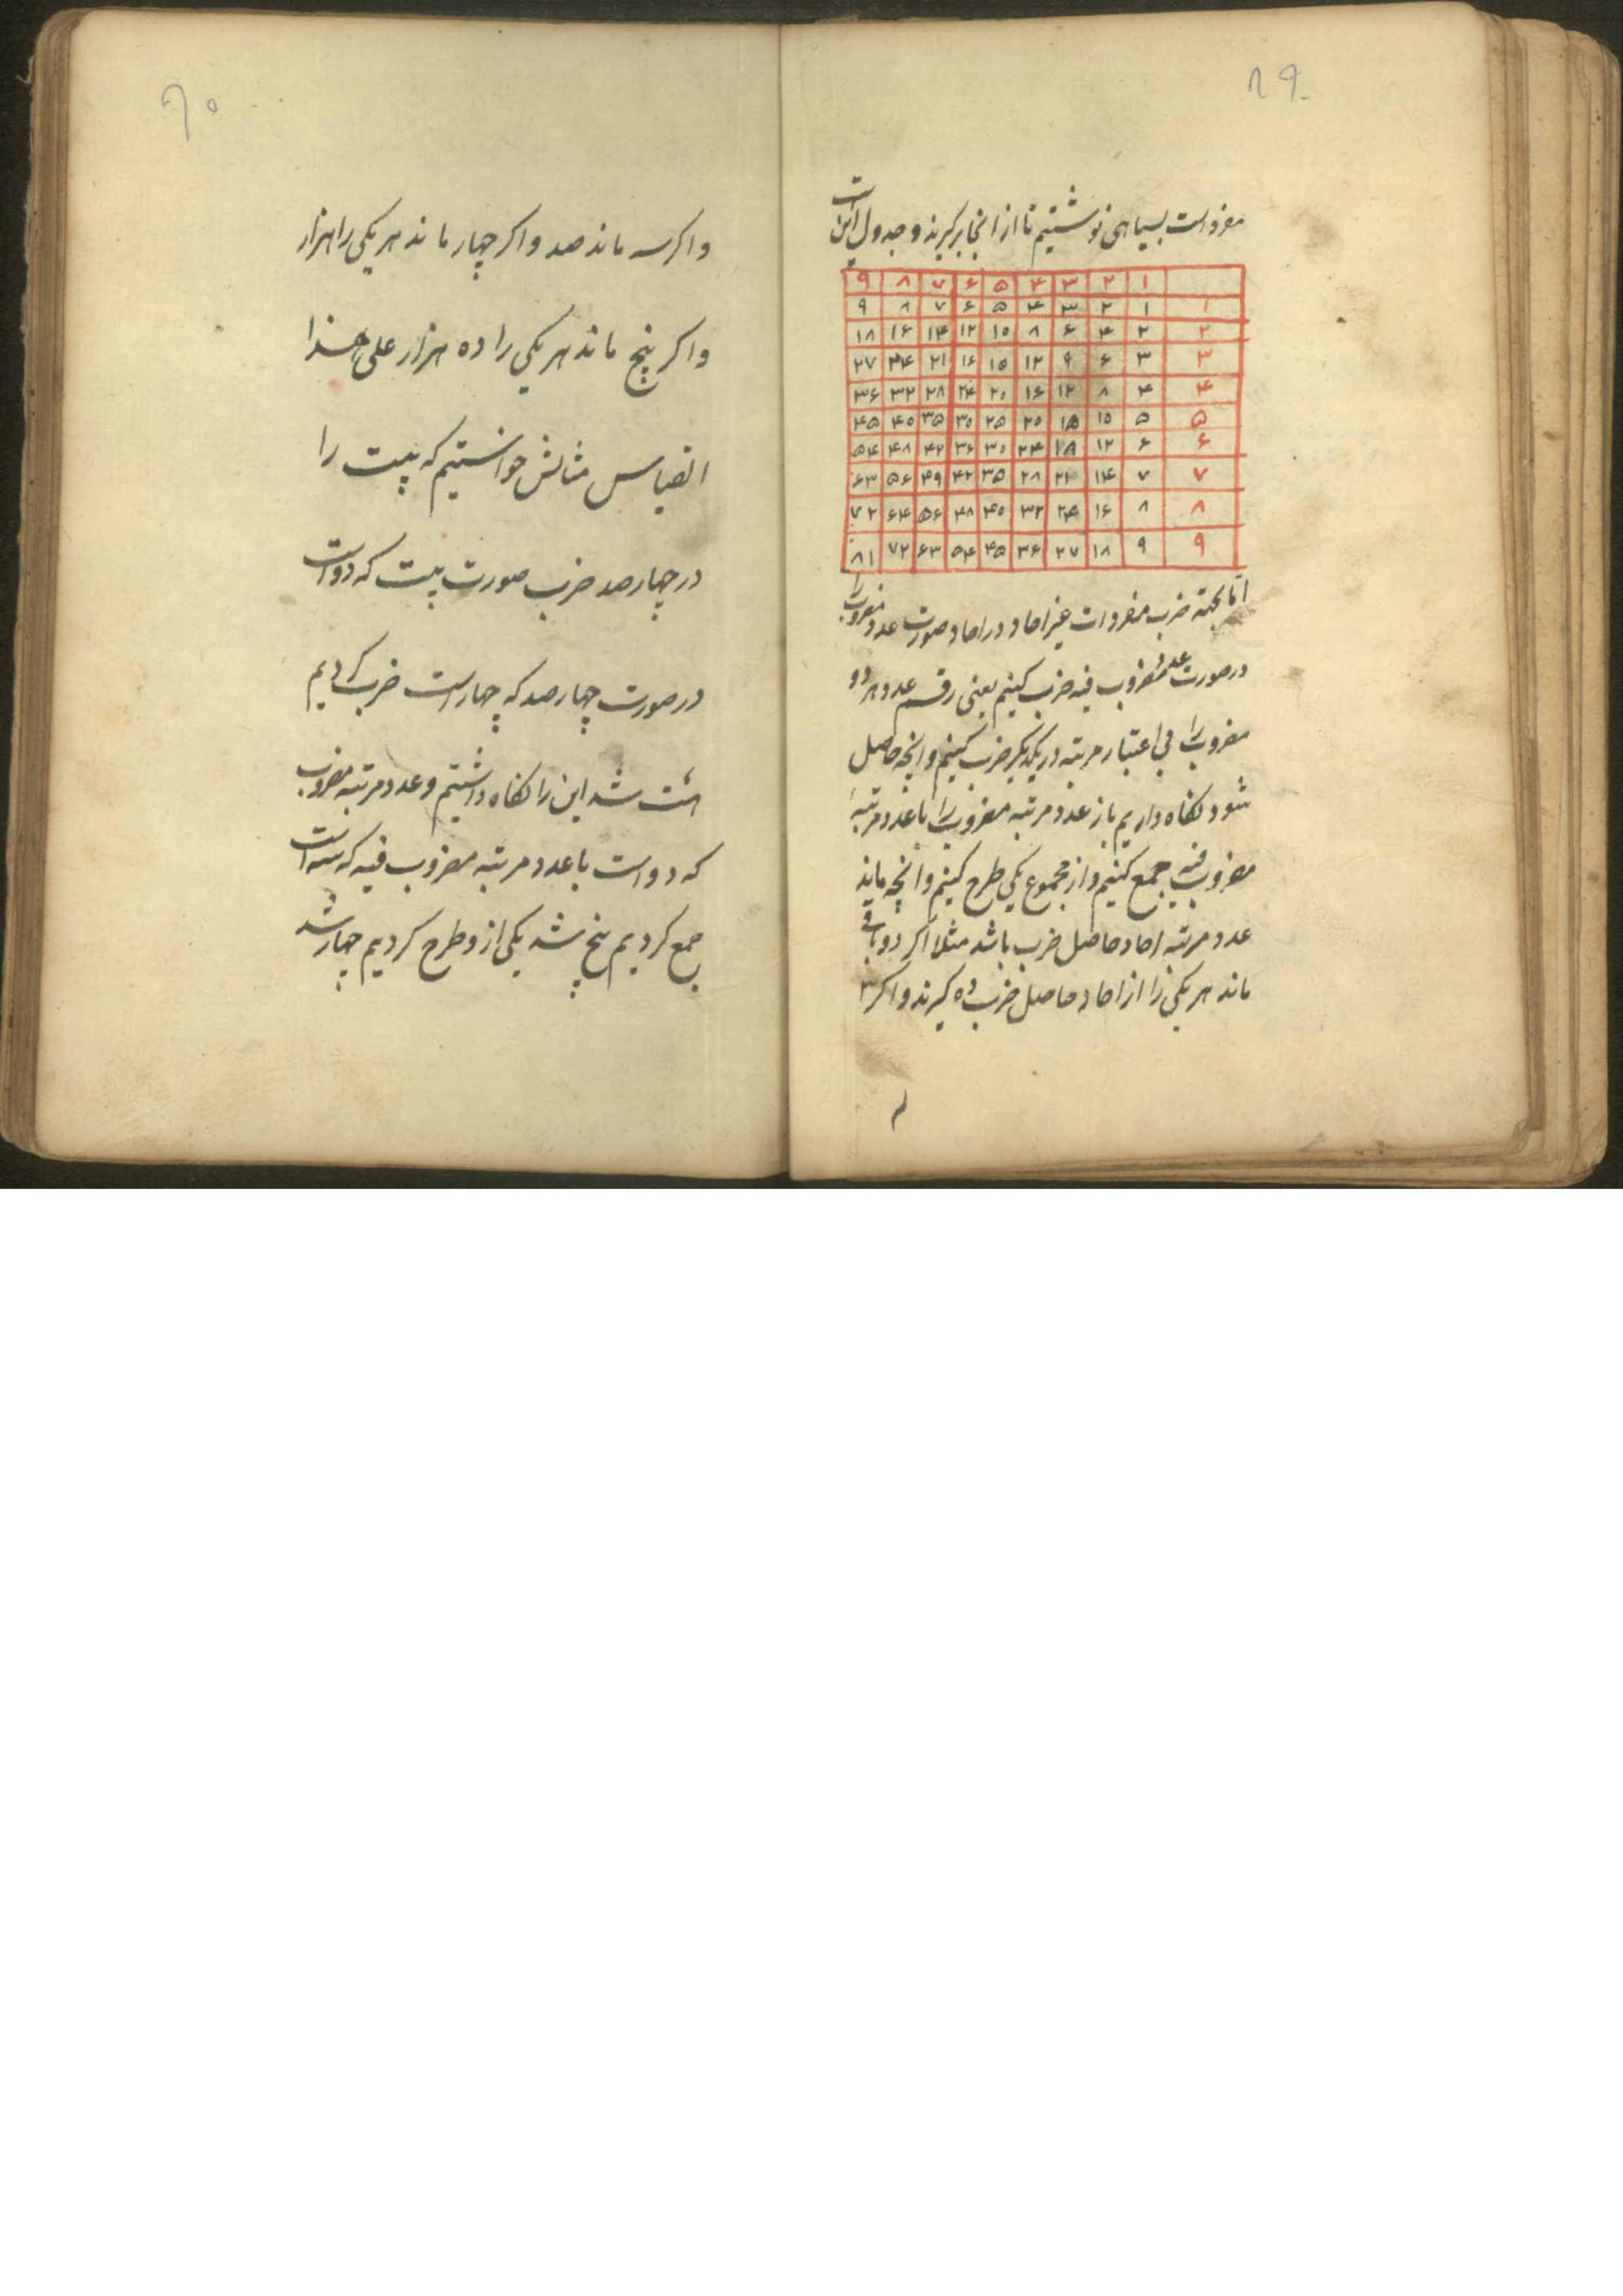 ۸۹
مفرداست بسیاهی نوشتیم تا از انجا برکیرند و جدول اینست
۹ ۸ ۷ ۶ ۵ ۴ ۳ ۲ ۱
۹ ۸ ۷ ۶ ۵ ۴ ۳ ۲ ۱ ۱
۱۸ ۱۶ ۱۴ ۱۲ ۱۰ ۸ ۶ ۴ ۲ ۲
۲۷ ۲۴ ۲۱ ۱۶ ۱۵ ۱۲ ۹ ۶ ۳ ۳
۳۶ ۳۲ ۲۸ ۲۴ ۲۰ ۱۶ ۱۲ ۸ ۴ ۴
۴۵ ۴۰ ۳۵ ۳۰ ۲۵ ۲۰ ۱۵ ۱۰ ۵ ۵
۵۴ ۴۸ ۴۲ ۳۶ ۳۰ ۲۴ ۱۸ ۱۲ ۶ ۶
۶۳ ۵۶ ۴۹ ۴۲ ۳۵ ۲۸ ۲۱ ۱۴ ۷ ۷
۷۲ ۶۴ ۵۶ ۴۸ ۴۰ ۳۲ ۲۴ ۱۶ ۸ ۸
۸۱ ۷۲ ۶۳ ۵۴ ۴۵ ۳۶ ۲۷ ۱۸ ۹ ۹
اما بجهة ضرب مفردات غیر احاد در احاد صورت عدد مضروب را
در صورت عدد مضروب فیه ضرب کنیم یعنی رقم عدد هر دو
مضروب را بی اعتبار مرتبه در یکدیکر ضرب کنیم و انچه حاصل
شود نکاه داریم باز عدد مرتبه مضروب را با عدد مرتبهٔ
مضروب فیه جمع کنیم و از مجموع یکی طرح کنیم و انچه ماند
عدد مرتبه احاد حاصل ضرب باشد مثلا اکر دو باقی
ماند هر یکی را از احاد حاصل ضرب ده کیرند و اکر ۳
۹۰
و اکر سه ماند صد و اکر چهار ماند هر یکی را هزار
و اکر پنج ماند هر یکی را ده هزار علی هذا
القیاس مثالش خواستیم که بیست را
در چهارصد ضرب صورت بیست که دو است
در صورت چهارصد که چهار است ضرب کردیم
هشت شد این را نکاه داشتیم و عدد مرتبه مضروب
که دو است با عدد مرتبه مضروب فیه که سه است
جمع کردیم پنج شد یکی از و طرح کردیم چهار شد